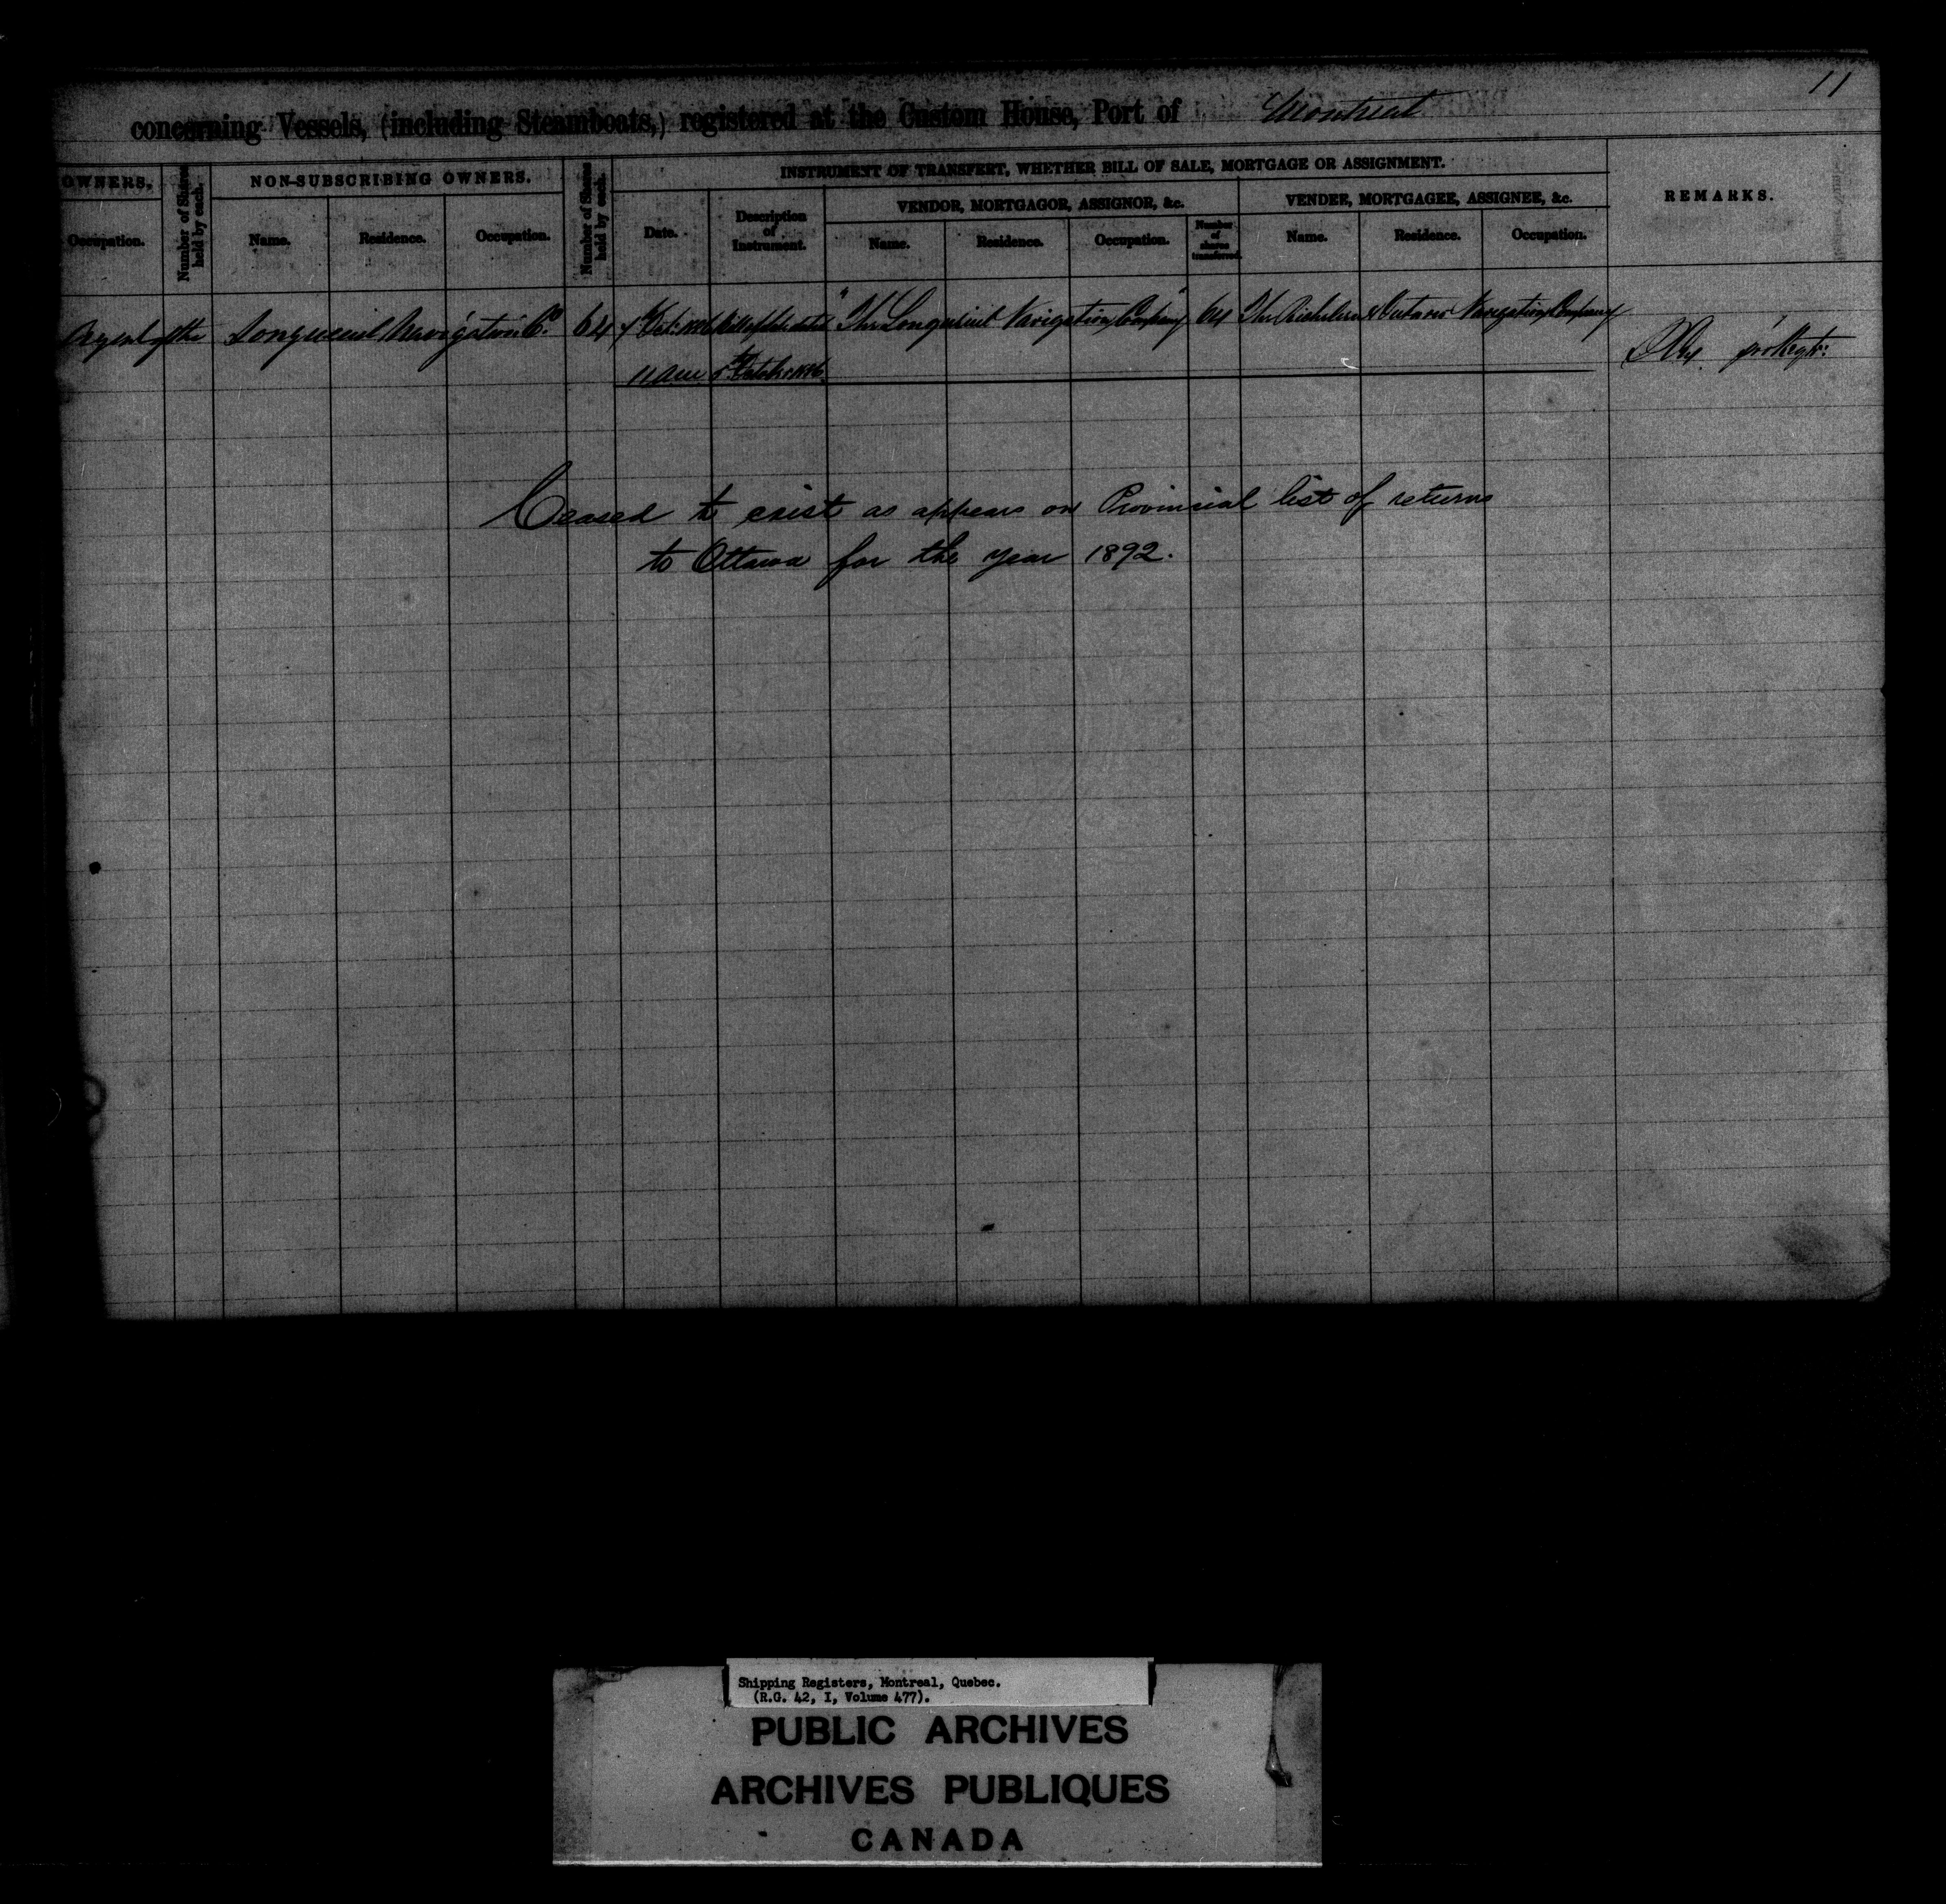 11
concerning Vessels, (including Steamboats,) registered at the Custom House, Port of Montreal
OWNERS.
Occupation.
Number of Shares held by each.
NON-SUBSCRIBING OWNERS.
Name.
Residence.
Occupation.
Number of Shares held by each.
INSTRUMENT OF TRANSFERT, WHETHER BILL OF SALE, MORTGAGE OR ASSIGNMENT.
Date.
Description of Instrument.
VENDOR, MORTGAGOR, ASSIGNOR, &c.
Name.
Residence.
Occupation.
Number of shares transferred.
VENDEE, MORTGAGEE, ASSIGNEE, &c.
Name.
Residence.
Occupation.
REMARKS.
Agent of the Longueuil Navigation Co. 64 Bill of Sale dated "The Longueuil Navigation Company" 64 The Richelieu & Ontario Navigation Company
11 am
Ceased to exist as appears on Provincial list of returns
to Ottawa for the year 1892.
Shipping Registers, Montreal, Quebec.
(R.G. 42, I, Volume 477).
PUBLIC ARCHIVES
ARCHIVES PUBLIQUES
CANADA